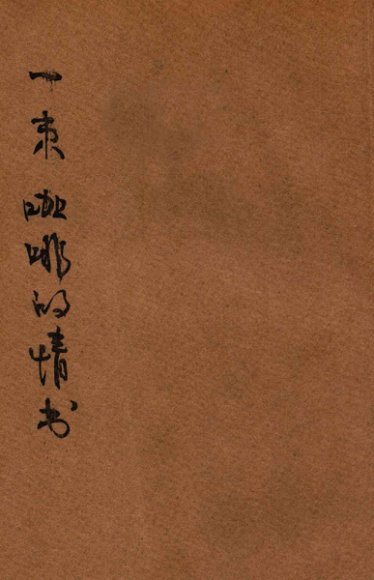 一束 咖啡的情书